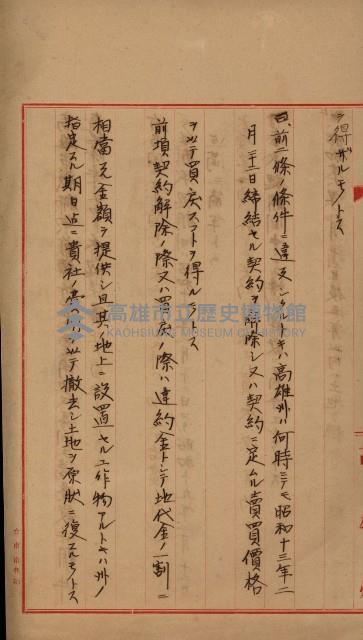 ヲ得ザルモノトス
四、前二條ノ條件ニ違反シタルトキハ高雄州ハ何時ニテモ昭和十三年二
月二十二日締結セル契約ヲ解除シ又ハ契約ニ定ムル賣買價格
ヲ以テ買戻スコトヲ得ルモノトス
前項契約解除ノ際又ハ買戻ノ際ハ違約金トシテ地代金ノ一割ニ
相當スル金額ヲ提供シ且其ノ地上ニ設置セル工作物アルトキハ州ノ
指定スル期日迄ニ貴社ノ費用ヲ以テ撤去シ土地ヲ原狀ニ復スルモノトス
高雄市立歷史博物館
KAOHSIUNG MUSEUM OF HISTORY